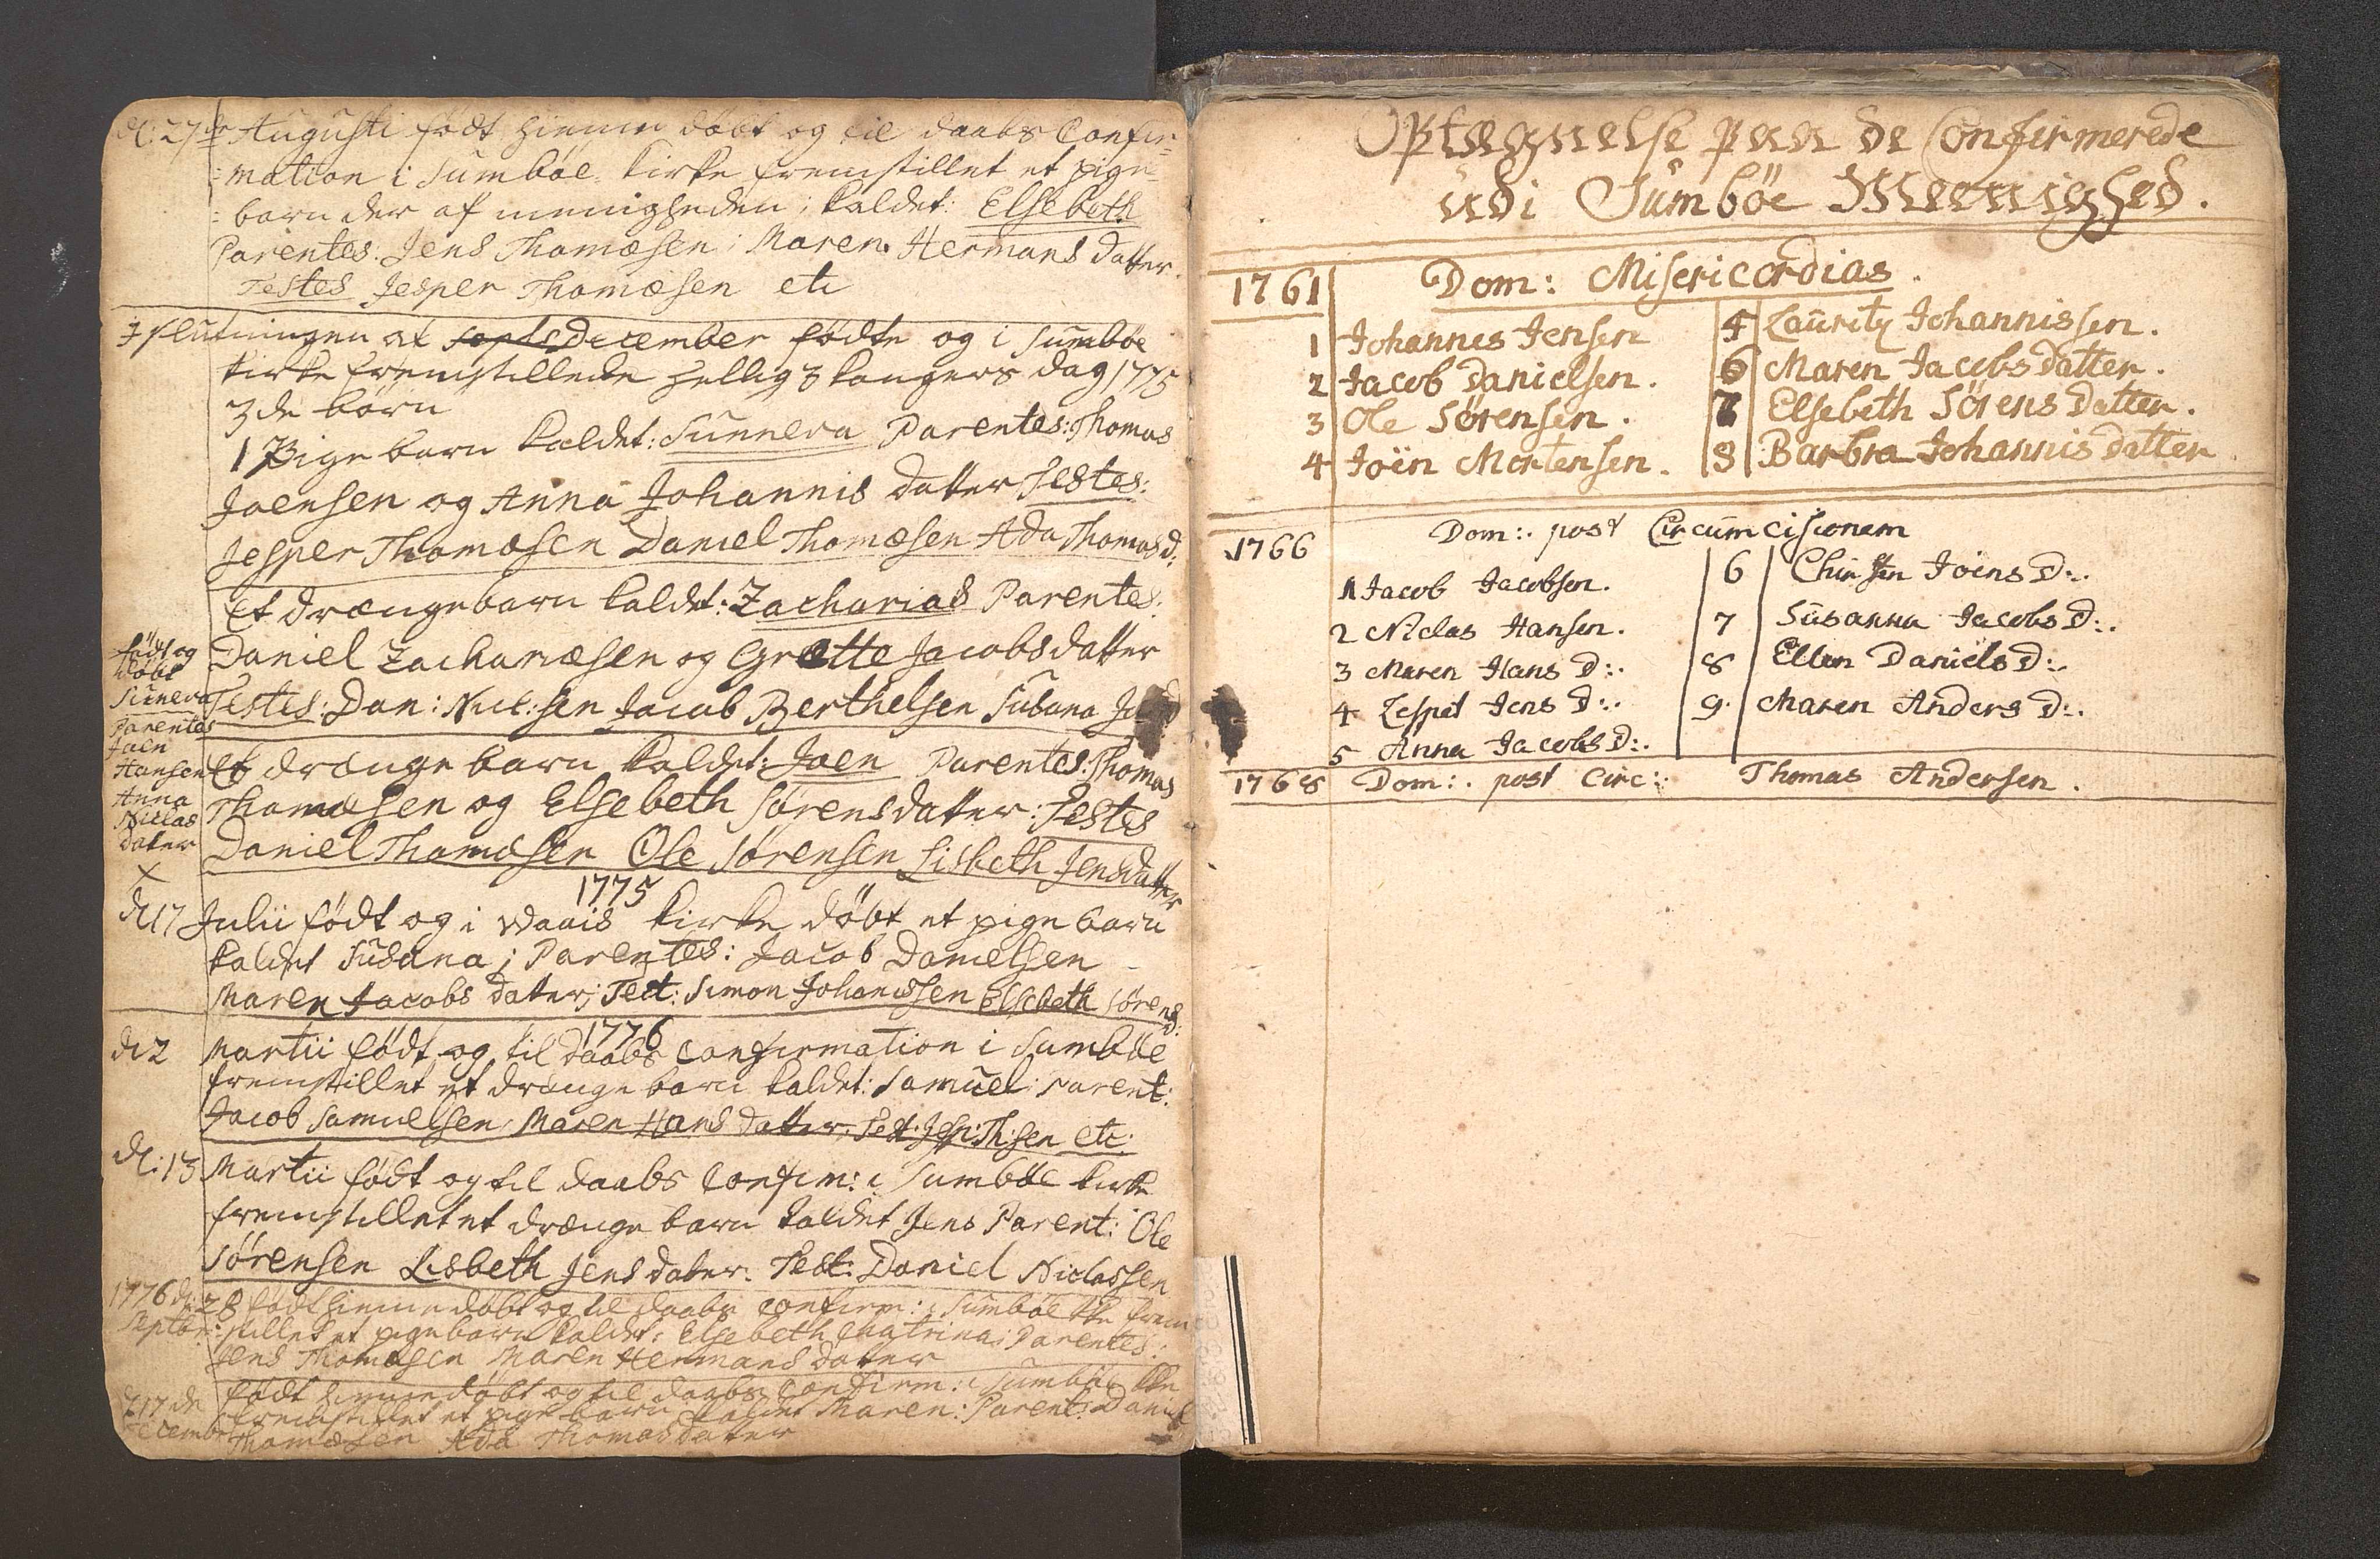 d: 27de Augusti født hiemme døbt og til daabs Confir-
mation i Sumbøe Kirke fremstillet et pige-
barn der af menigheden; kaldet: Elsebeth
Parentes: Jens Thomæsen; Maren Hermans datter.
Testes Jesper Thomæsen etc
I slutningen af septb December fødte og i Sumbøe
Kirke fremstillede hellig 3 kongers dag 1775
3de børn
1 Pige barn kaldet: Sunneva Parentes: Thomas
Joensen og Anna Johannis datter Testes:
Jesper Thomæsen Daniel Thomæsen Ada Thomas d:
Et drænge barn kaldet: Zacharias Parentes:
Daniel Zachariæsen og Grætte Jacobs datter
Testes: Dan: Nicl:sen Jacob Berthelsen Susana
født og
døbt
Sunneva
Parentes
Joen
Hansen
Anna
Niclas
dater
Et drænge barn kaldet: Joen Parentes: Thomas
Thomæsen og Elsebeth Sørens datter: Testes
Daniel Thomæsen Ole Sørensen Lisbeth Jensdatter
1775
d 17 Julii født og i Waais Kirke døbt et pige barn
kaldet Susana; Parentes: Jacob Danielsen
Maren Jacobs dater; Test: Simon Johanissen Elsebeth Sørens d:
1776
d 2 Martii født og til daabs Confirmation i Sumbøe
fremstillet et drænge barn kaldet: Samuel: Parent:
Jacob Samuelsen Maren Hans datter, Test: Jesp: Th:sen etc:
d: 13 Martii født og til daabs Confirm: i Sumbøe kirke
fremstillet et drænge barn kaldet Jens Parent: Ole
Sørensen Lisbeth Jens dater. Test: Daniel Niclassen
1776 d: 28 født hiemme døbt og til daabs Confirm: i Sumbøe kke frem
Septbr: stillet et pigebarn kaldet: Elsebeth Chatrina; Parentes:
Jens Thomæsen Maren Hermans dater
d 17 de født hiemme døbt og til daabs Confirm: i Sumbøe kke
Decemb: fremstillet et pige barn kaldet Maren: Parent: Daniel
Thomæsen Ada Thomas dater
Optægnelse paa de Confirmerede
udi Sumbøe Meenighed.
1761 Dom: Misericordias.
1 Johannes Jensen 5 Lauritz Johannissen.
2 Jacob Danielsen. 6 Maren Jacobs Datter.
3 Ole Sørensen. 7 Elsebeth Sörens Datter.
4 Joën Mortensen. 8 Barbra Johannis datter.
1766 Dom:. post Circumcisionem
1 Jacob Jacobsen. 6 Joens D:.
2 Niclas Hansen. 7 Susanna Jacobs D:.
3 Maren Hans D:. 8 Ellen Daniels D:.
4 Jens D:. 9. Maren Anders D:.
5 Anna Jacobs D:.
1768 Dom:. post Circ:: Thomas Andersen.